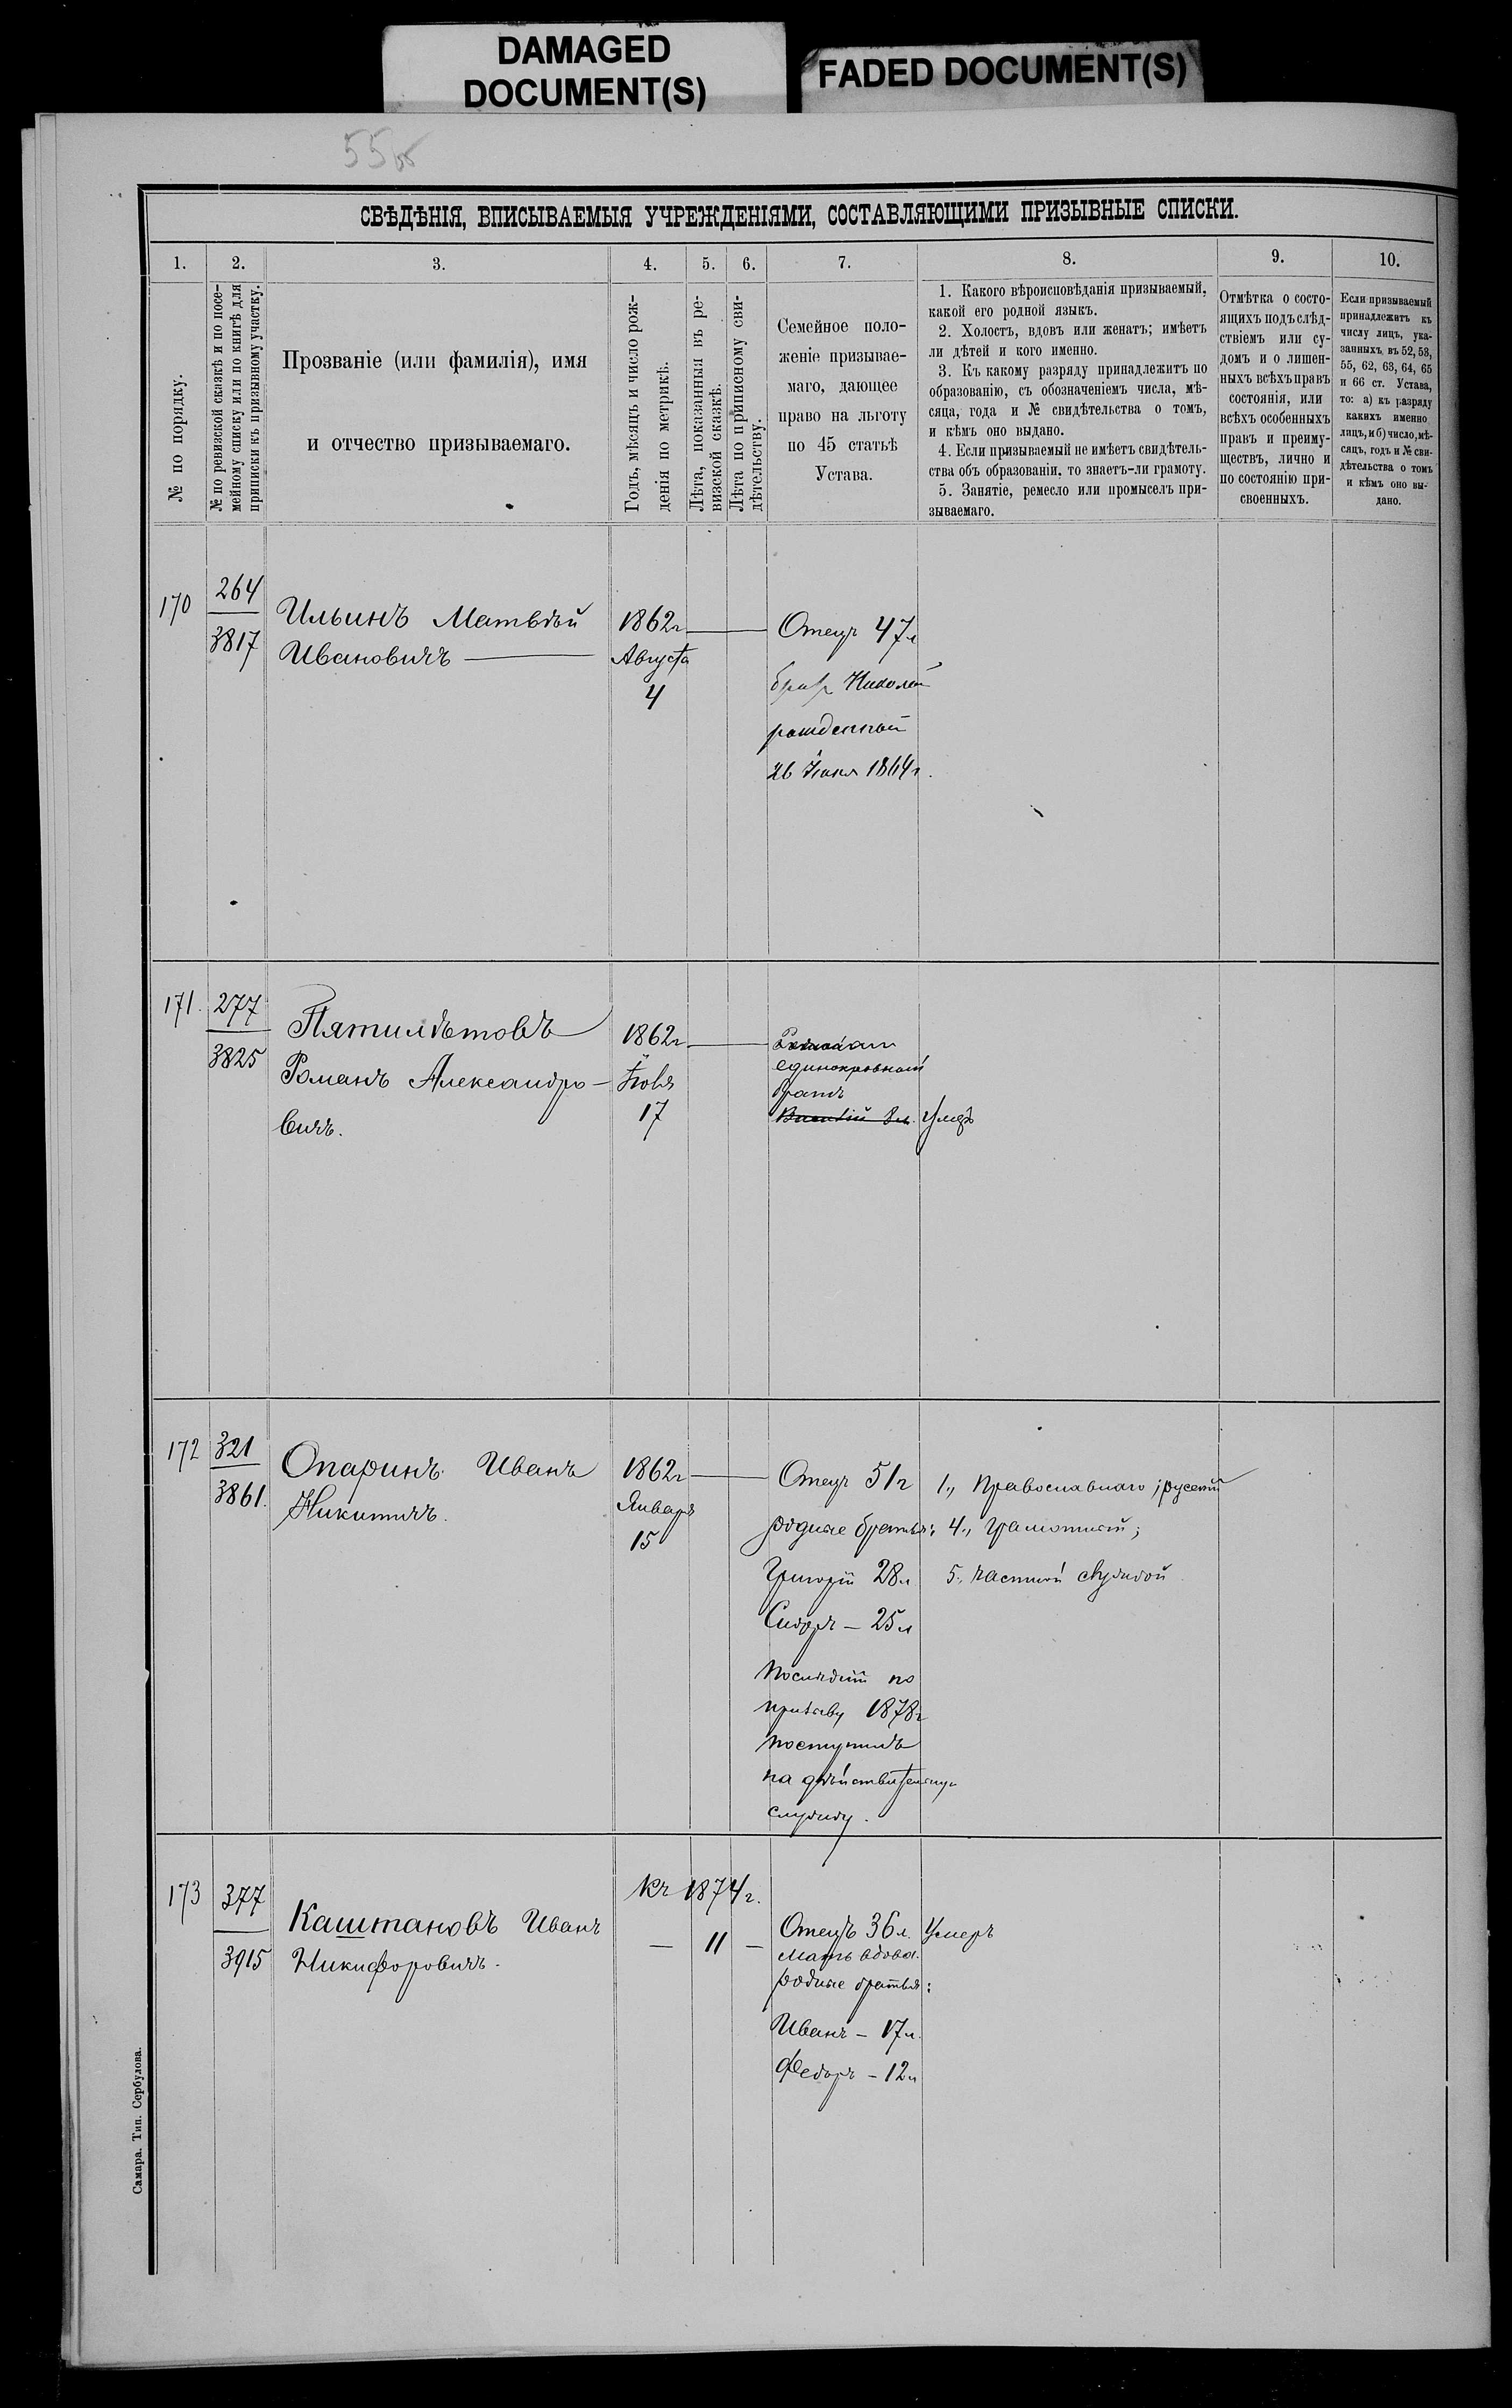 DAMAGED
DOCUMENT(S)
FADED DOCUMENT(S)
55об
СВѢДѢНІЯ, ВПИСЫВАЕМЫЯ УЧРЕЖДЕНІЯМИ, СОСТАВЛЯЮЩИМИ ПРИЗЫВНЫЕ СПИСКИ.
1.
2.
3.
4.
5.
6.
7.
8.
9.
10.
№ по порядку.
№ по ревизской сказкѣ и по посе-
мейному списку или по книгѣ для
приписки къ призывному участку.
Прозваніе (или фамилія), имя
и отчество призываемаго.
Годъ, мѣсяцъ и число рож-
денія по метрикѣ.
Лѣта, показанныя въ ре-
визской сказкѣ.
Лѣта по приписному сви-
дѣтельству.
Семейное поло-
женіе призывае-
маго, дающее
право на льготу
по 45 статьѣ
Устава.
1. Какого вѣроисповѣданія призываемый,
какой его родной языкъ.
2. Холостъ, вдовъ или женатъ; имѣетъ
ли дѣтей и кого именно.
3. Къ какому разряду принадлежитъ по
образованію, съ обозначеніемъ числа, мѣ-
сяца, года и № свидѣтельства о томъ,
и кѣмъ оно выдано.
4. Если призываемый не имѣетъ свидѣтель-
ства объ образованіи, то знаетъ-ли грамоту.
5. Занятіе, ремесло или промыселъ при-
зываемаго.
Отмѣтка о состо-
ящихъ подъ слѣд-
ствіемъ или су-
домъ и о лишен-
ныхъ всѣхъ правъ
состоянія, или
всѣхъ особенныхъ
правъ и преиму-
ществъ, лично и
по состоянію при-
своенныхъ.
Если призываемый
принадлежитъ къ
числу лицъ, ука-
занныхъ въ 52, 53,
55, 62, 63, 64, 65
и 66 ст. Устава,
то: а) къ разряду
какихъ именно
лицъ, и б) число, мѣ-
сяцъ, годъ и № сви-
дѣтельства о томъ
и кѣмъ оно вы-
дано.
170
264
3817
Ильинъ Матвѣй
Ивановичъ
1862г
Августа
4
Отецъ 47л
братъ Николай
рожденный
26 Іюня 1864г.
171.
277
3825
Пятилѣтовъ
Романъ Александро-
вичъ.
1862г
Іюля
17
единокровный
братъ
8л. Умеръ
172
321
3861.
Опаринъ Иванъ
Никитичъ.
1862г
Января
15
Отецъ 51г
родные братья:
Григорій 28л
Сидоръ – 25л
Послѣдній по
призыву 1878г
поступилъ
на дѣйствительную
службу.
1., Православнаго; русскій
4., Грамотный;
5., частной службой
173
377
3915
Каштановъ Иванъ
Никифоровичъ.
Къ 1874г.
— 11 —
Отецъ 36л. Умеръ
Мать вдова.
родные братья:
Иванъ – 17л.
Федоръ – 12л
Самара. Тип. Сербулова.